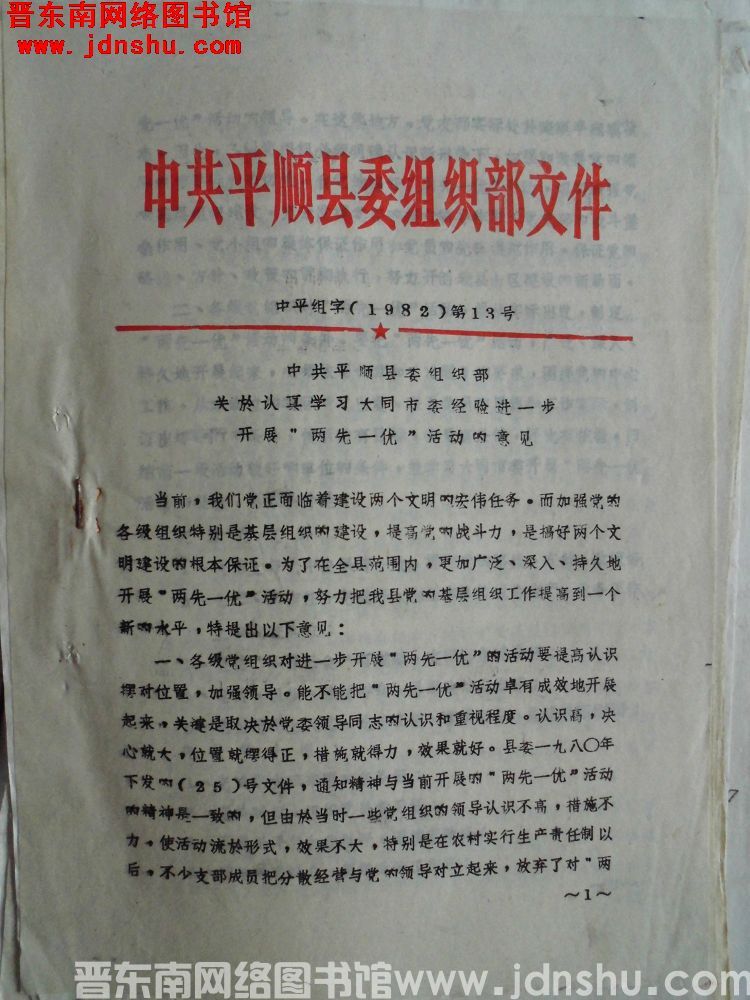 晋东南网络图书馆
www.jdnshu.com
中共平顺县委组织部文件
中平组字(1982)第13号
中共平顺县委组织部
关於认真学习大同市委经验进一步
开展“两先一优”活动的意见
当前，我们党正面临着建设两个文明的宏伟任务。而加强党的
各级组织特别是基层组织的建设，提高党的战斗力，是搞好两个文
明建设的根本保证。为了在全县范围内，更加广泛、深入、持久地
开展“两先一优”活动，努力把我县党的基层组织工作提高到一个
新的水平，特提出以下意见：
一、各级党组织对进一步开展“两先一优”的活动要提高认识
摆对位置，加强领导。能不能把“两先一优”活动卓有成效地开展
起来，关键是取决於党委领导同志的认识和重视程度。认识高，决
心就大，位置就摆得正，措施就得力，效果就好。县委一九八〇年
下发的(25)号文件，通知精神与当前开展的“两先一优”活动
的精神是一致的，但由於当时一些党组织的领导认识不高，措施不
力，使活动流於形式，效果不大，特别是在农村实行生产责任制以
后，不少支部成员把分散经营与党的领导对立起来，放弃了对“两
～1～
晋东南网络图书馆www.jdnshu.com